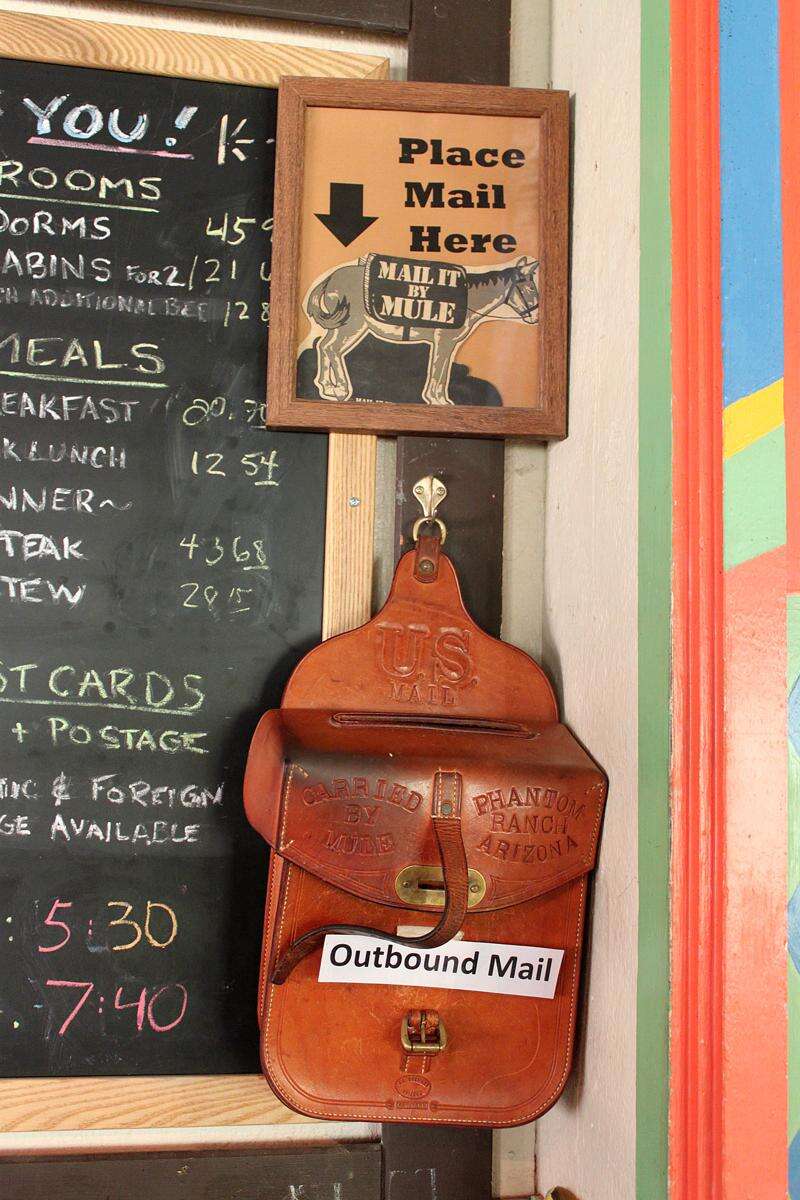 YOU!
ROOMS
DORMS 459
ABINS FOR 2/ 121
ADDITIONAL 128
MEALS
EAKFAST 20.70
K LUNCH 12 54
NNER~
TEAK 43 68
TEW 28 15
ST CARDS
+ POSTAGE
TIC & FOREIGN
GE AVAILABLE
: 5:30
. 7:40
Place
Mail
Here
MAIL IT
BY
MULE
U.S.
MAIL
CARRIED
BY
MULE
PHANTOM
RANCH
ARIZONA
Outbound Mail